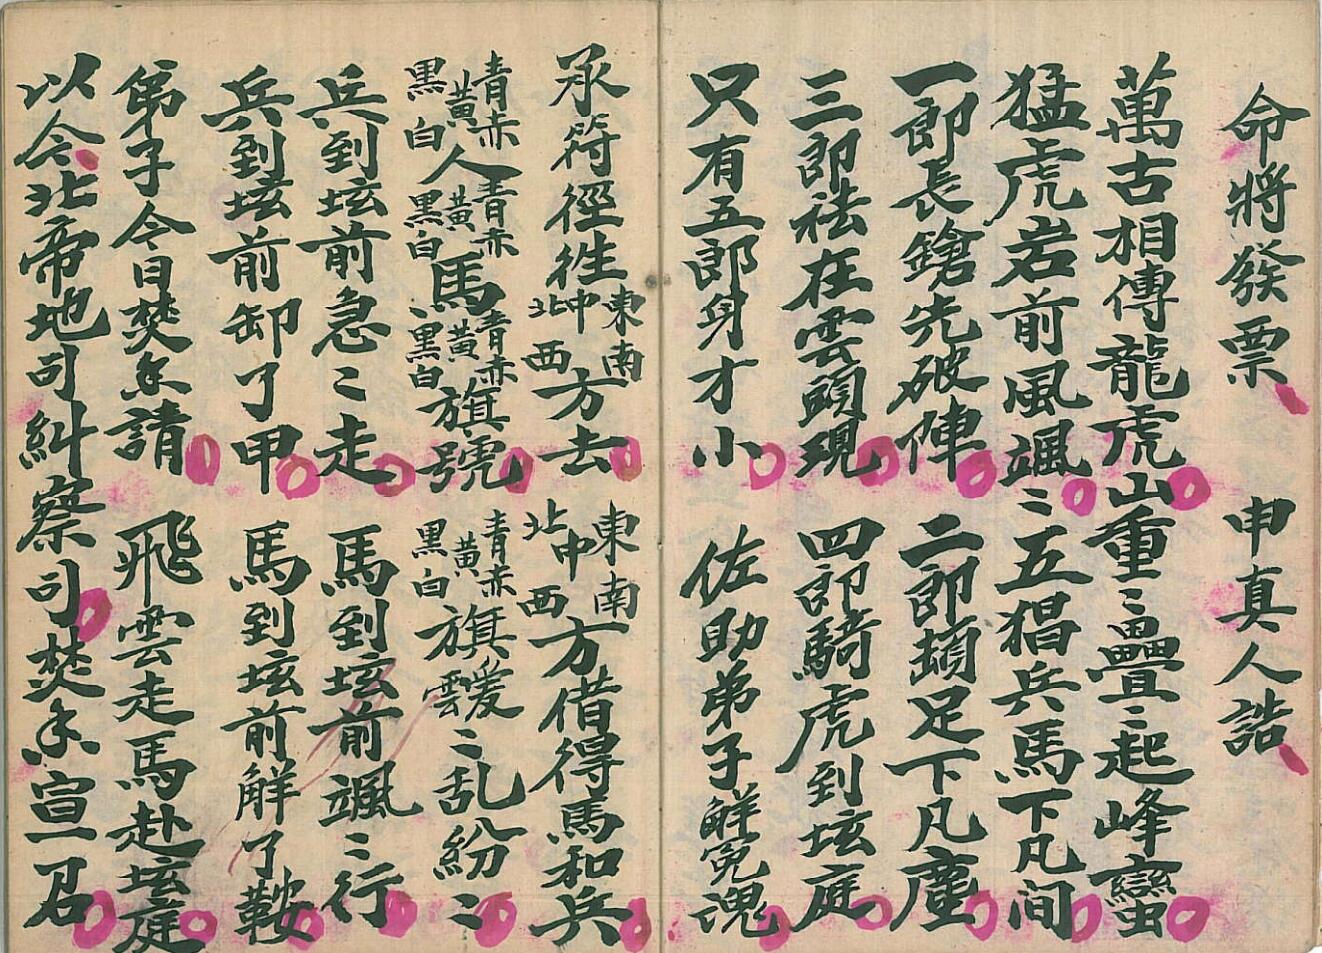 命將發票 申真人誥
萬古相傳龍虎山重〻疊〻起峰蠻
猛虎岩前風颯〻五猖兵馬下凡間
一郎長鎗先破陣二郎頓足下凡塵
三郎袪在雲頭現四郎騎虎到坛庭
只有五郎身才小佐助弟子解冤魂
承符徑徃東南中北西方去東南中北西方借得馬和兵
青赤黃黑白人青赤黃黑白馬青赤黃黑白旗號青赤黃黑白旗雲靉〻乱紛〻
兵到坛前急〻走馬到坛前颯〻行
兵到坛前卸了甲馬到坛前解了鞍
弟子今日焚香請飛雲走馬赴坛庭
以今北帝地司糾察司焚香宣召